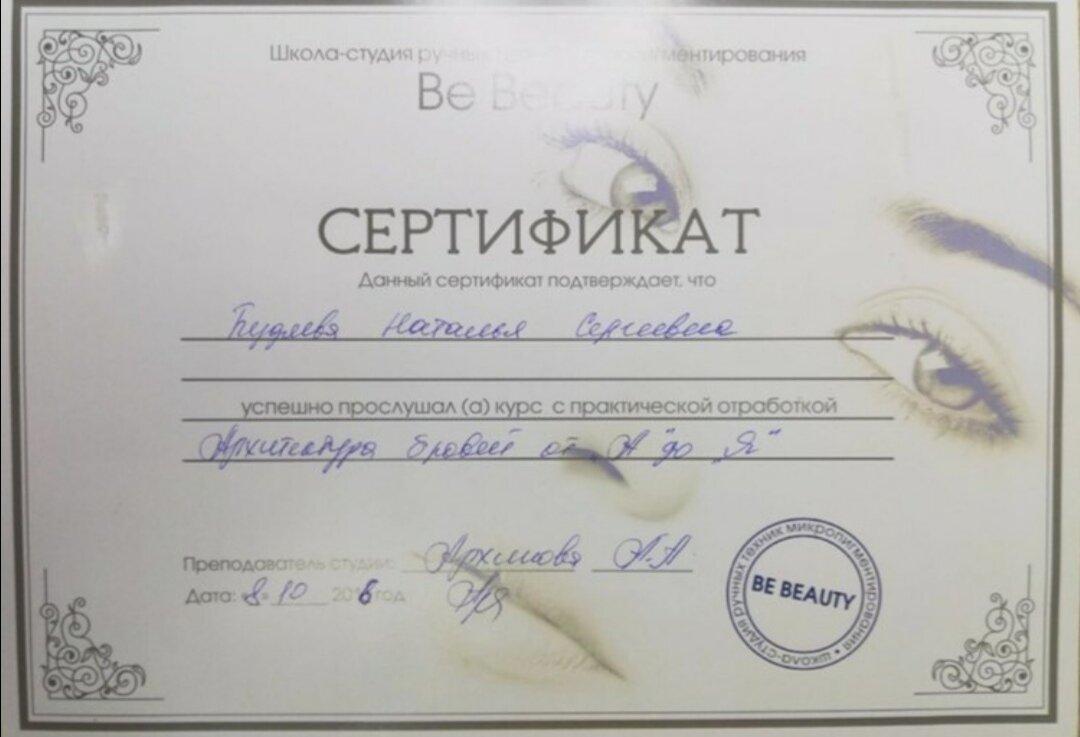 Школа-студия ручных техник микропигментирования
Be Beauty
СЕРТИФИКАТ
Данный сертификат подтверждает, что
Наталья Сергеевна
успешно прослушал (а) курс с практической отработкой
Архитектура бровей от „А" до „Я"
Преподаватель студии: А.А
Дата: «8» 10 2016 год
ШКОЛА-СТУДИЯ РУЧНЫХ ТЕХНИК МИКРОПИГМЕНТИРОВАНИЯ •
BE BEAUTY